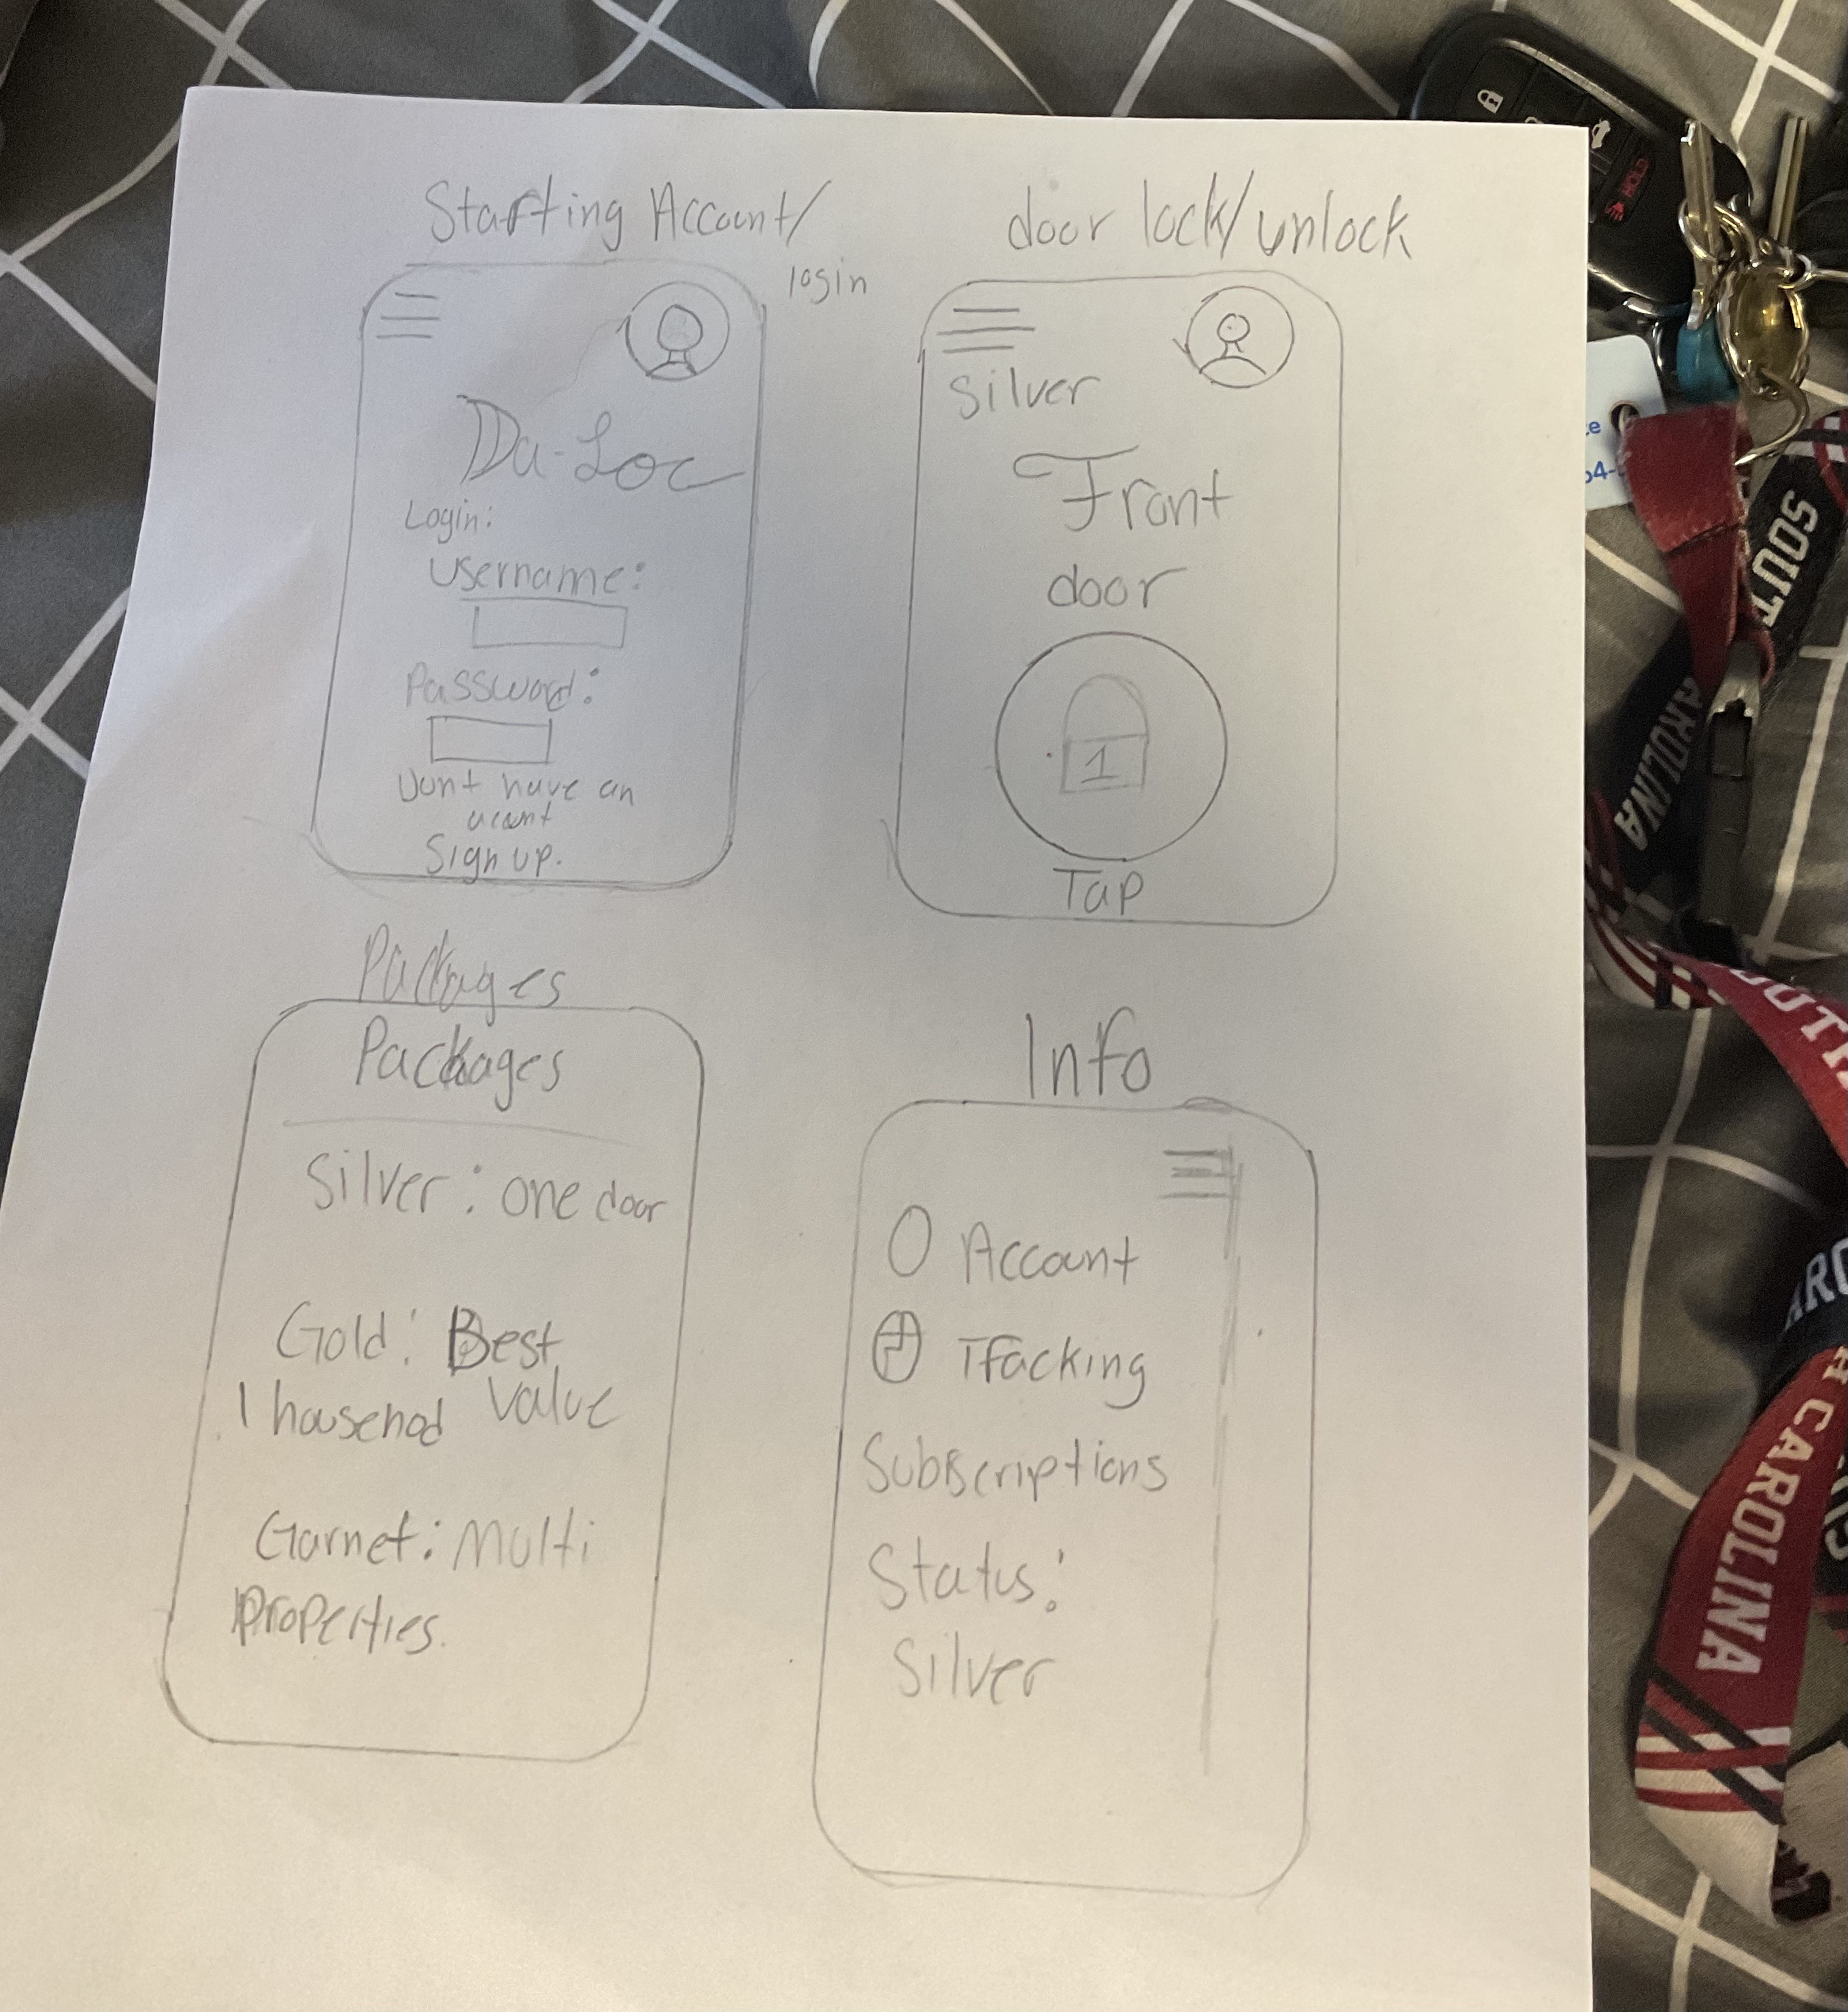 Starting Account/
login
Da-Loc
Login:
Username:
Password:
Dont have an
acount
Sign up.
door lock/unlock
Silver
Front
door
1
Tap
Packages
Packages
Silver: one door
Gold: Best
Value
1 househod
Garnet: Multi
Properties.
Info
Account
Tracking
Subscriptions
Status:
Silver
SOUT
AROLINA
OUTH
ARO
H CAROLINA